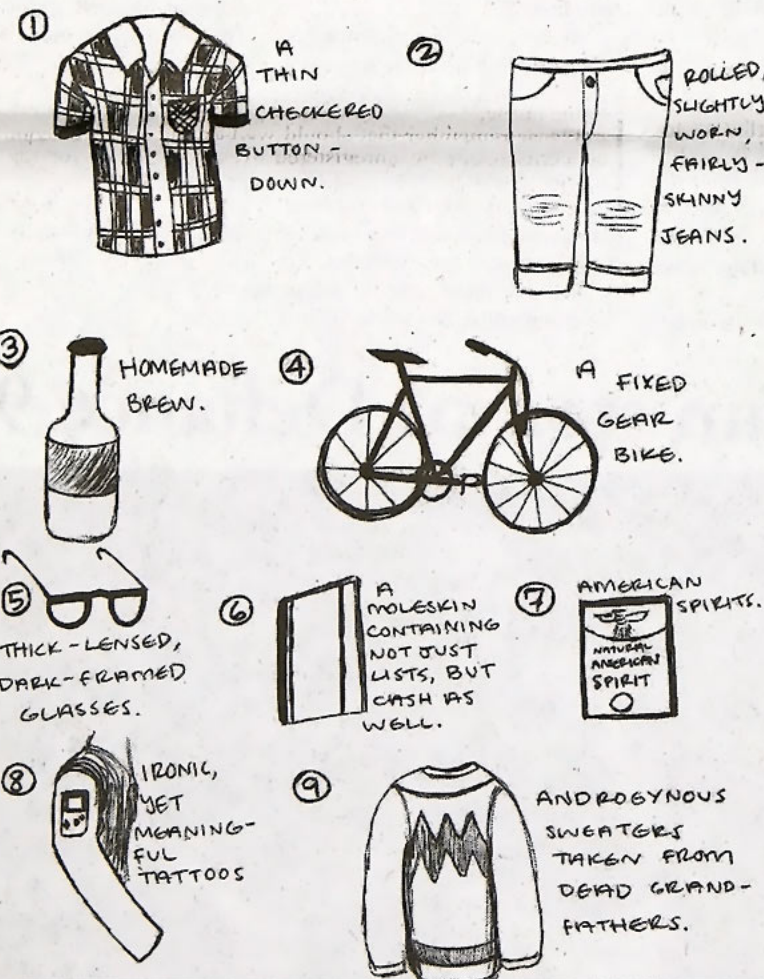 ①
A
THIN
CHECKERED
BUTTON-
DOWN.
②
ROLLED,
SLIGHTLY
WORN,
FAIRLY-
SKINNY
JEANS.
③
HOMEMADE
BREW.
④
A FIXED
GEAR
BIKE.
⑤
THICK-LENSED,
DARK-FRAMED
GLASSES.
⑥
A
MOLESKIN
CONTAINING
NOT JUST
LISTS, BUT
CASH AS
WELL.
⑦
AMERICAN
SPIRITS.
NATURAL
AMERICAN
SPIRIT
⑧
IRONIC,
YET
MEANING-
FUL
TATTOOS
⑨
ANDROGYNOUS
SWEATERS
TAKEN FROM
DEAD GRAND-
FATHERS.